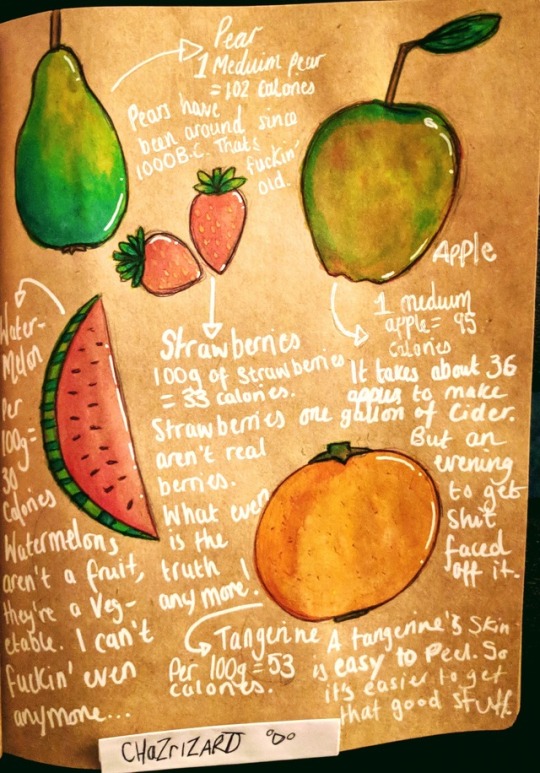 Pear
1 Meduim pear
= 102 Calories
Pears have
been around since
1000B.C. Thats
fuckin'
old.
Apple
1 medium
apple = 95
Calories
It takes about 36
apples to make
one gallon of Cider.
But an
evening
to get
shit
faced
off it.
Strawberries
100g of Strawberries
= 33 calories.
Strawberries
aren't real
berries.
What even
is the
truth
any more!
Water-
Melon
Per
100g=
30
Calories
Watermelons
aren't a fruit,
they're a Veg-
etable. I can't
Fuckin' even
anymore...
Tangerine
Per 100g = 53
calories.
A tangerine's Skin
is easy to Peel. So
it's easier to get
that good stuff.
CHaZriZARD